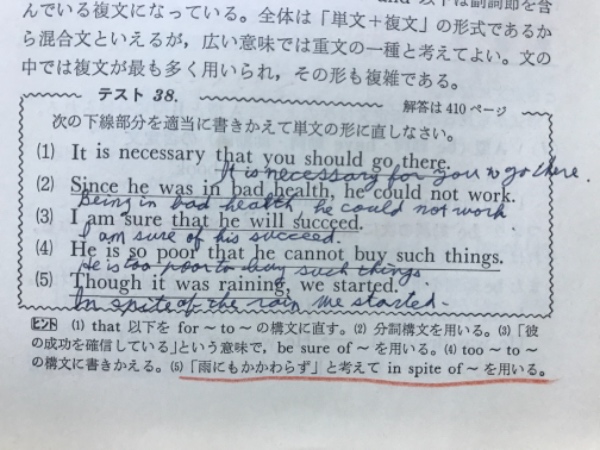 んでいる複文になっている。全体は「単文＋複文」の形式であるか
ら混合文といえるが，広い意味では重文の一種と考えてよい。文の
中では複文が最も多く用いられ，その形も複雑である。
テスト 38.
解答は 410 ページ
次の下線部分を適当に書きかえて単文の形に直しなさい。
(1) It is necessary that you should go there.
It is necessary for you to go there.
(2) Since he was in bad health, he could not work.
Being in bad health, he could not work
(3) I am sure that he will succeed.
I am sure of his succeed.
(4) He is so poor that he cannot buy such things.
He is too poor to buy such things
(5) Though it was raining, we started.
In spite of the rain we started.
ヒント (1) that 以下を for ~ to ~ の構文に直す。(2) 分詞構文を用いる。(3)「彼
の成功を確信している」という意味で，be sure of ~ を用いる。(4) too ~ to ~
の構文に書きかえる。(5)「雨にもかかわらず」と考えて in spite of ~ を用いる。